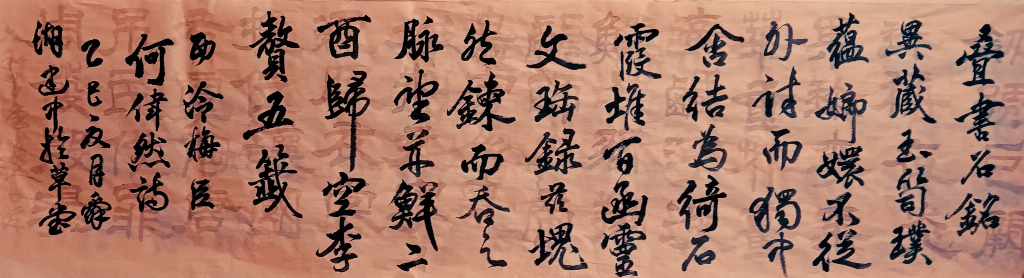 叠書石銘
異藏玉笥璞
蘊嫏嬛不從
外討而獨中
含結為綺石
霞堆百函靈
文瑤録茲塊
然鍊而吞之
脉望并鮮二
酉歸空李
贅五籤
西泠梅臣
何偉然詩
乙巳夏月舜
湖建中於草堂